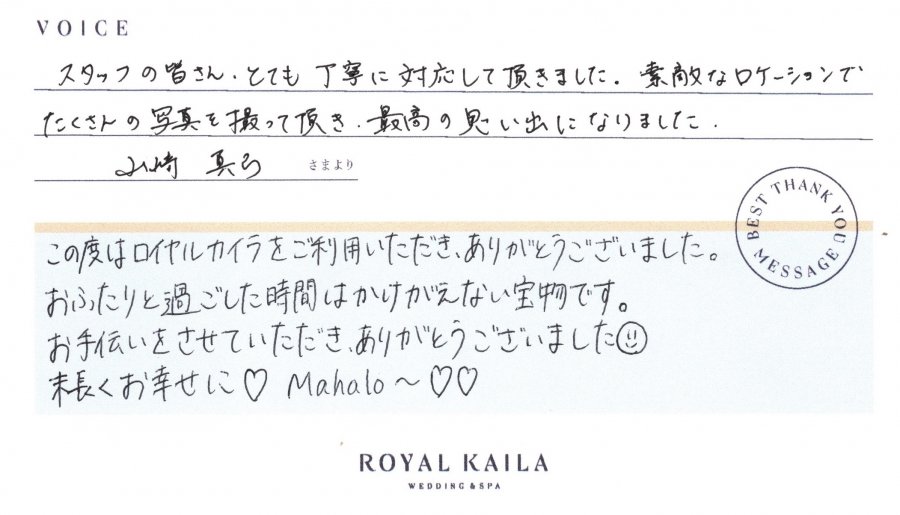 VOICE
スタッフの皆さん、とても丁寧に対応して頂きました。素敵なロケーションで
たくさんの写真を撮って頂き、最高の思い出になりました。
山崎 真弓 さまより
BEST THANK YOU MESSAGE
この度はロイヤルカイラをご利用いただき、ありがとうございました。
おふたりと過ごした時間はかけがえない宝物です。
お手伝いをさせていただき、ありがとうございました☺
末長くお幸せに♡ Mahalo～♡♡
ROYAL KAILA
WEDDING & SPA